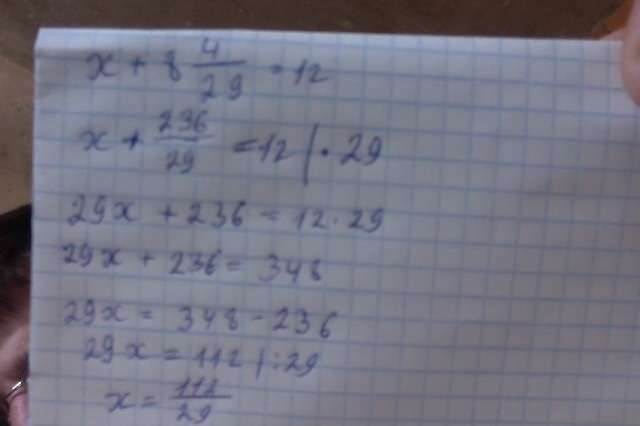 x + 8 4/29 = 12
x + 236/29 = 12 | · 29
29x + 236 = 12 · 29
29x + 236 = 348
29x = 348 - 236
29x = 112 | : 29
x = 112/29